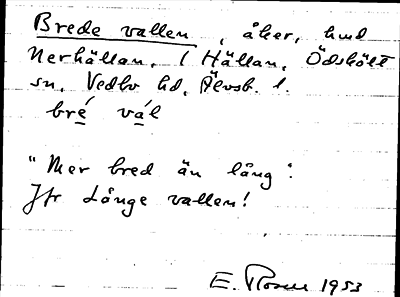 Brede vallen, åker, hmd
Nerhällan, 1 Hällan, Ödskölt
sn, Vedbo hd, Älvsb. l.
bré vál
"Mer bred än lång".
Jfr Långe vallen!
E. Rosen 1953